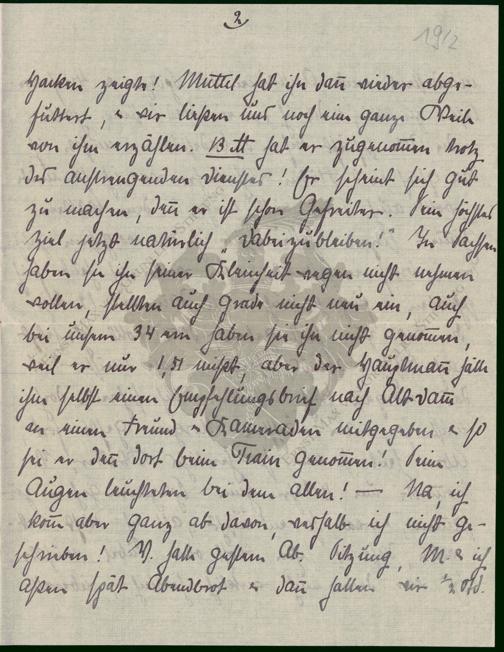 2
1912
Hacken zeigte! Muttel hat ihn dann wieder abge-
füttert, u wir ließen uns noch eine ganze Weile
von ihm erzählen. 13 ℔ hat er zugenommen trotz
des anstrengenden Dienstes! Er scheint sich gut
zu machen, denn er ist schon Gefreiter. Sein höchstes
Ziel jetzt natürlich „dabeizubleiben!" In Sachsen
haben sie ihn seiner Kleinheit wegen nicht nehmen
wollen, stellten auch grade nicht neu ein, auch
bei unsern 34 ern haben sie ihn nicht genommen,
weil er nur 1,51 mißt, aber der Hauptmann hätte
ihm selbst einen Empfehlungsbrief nach Altdamm
an einen Freund u Kameraden mitgegeben u so
sei er denn dort beim Train genommen! Seine
Augen leuchteten bei dem allen! — Na, ich
komm aber ganz ab davon, weshalb ich nicht ge-
schrieben! V. hatte gestern Ab. Sitzung, M. u ich
aßen spät Abendbrot u dann hatten wir ½ Std.